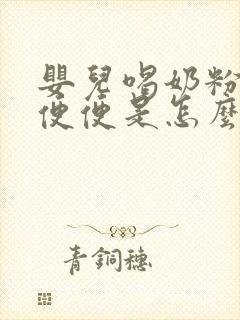 嬰兒喝奶粉
便便是怎麼
青銅穗